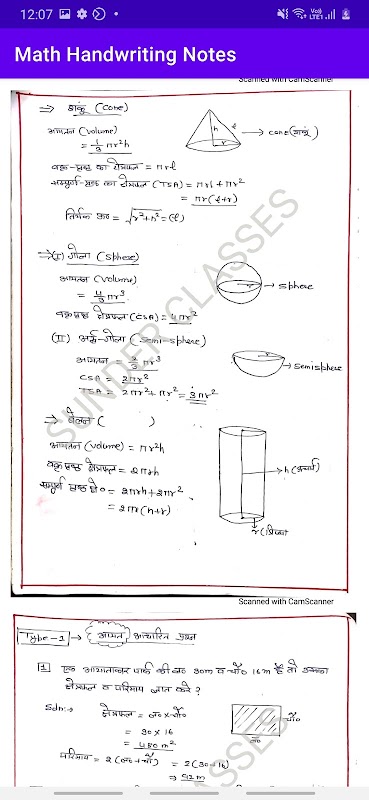 12:07
Vo)) LTE1
Math Handwriting Notes
Scanned with CamScanner
⇒ शंकु (Cone)
आयतन (Volume)
= 1/3 πr²h
h
r
l
→ cone (शंकु)
वक्र-पृष्ठ का क्षेत्रफल = πrl
सम्पूर्ण-पृष्ठ का क्षेत्रफल (TSA) = πrl + πr²
= πr(l+r)
तिर्यक ऊँ० = √r²+h² = (l)
⇒ (I) गोला (Sphere)
आयतन (Volume)
= 4/3 πr³
→ Sphere
वक्र पृष्ठ क्षेत्रफल (CSA) = 4πr²
(II) अर्द्ध-गोला (Semi-sphere)
आयतन = 2/3 πr³
CSA = 2πr²
TSA = 2πr² + πr² = 3πr²
→ Semisphere
→ बेलन ( )
आयतन (Volume) = πr²h
वक्र पृष्ठ क्षेत्रफल = 2πrh
सम्पूर्ण पृष्ठ क्षे० = 2πrh + 2πr²
= 2πr(h+r)
→ h (ऊँचाई)
r (त्रिज्या
SUNDER CLASSES
Scanned with CamScanner
Type-1 → आयत आधारित प्रश्न
1 एक आयताकार पार्क की ल० 30m व चौ० 16m है तो इसका
क्षेत्रफल व परिमाप ज्ञात करे ?
Soln:→ क्षेत्रफल = ल० × चौ०
= 30 × 16
= 480 m²
चौ०
ल०
परिमाप = 2(ल०+चौ०) = 2(30+16)
⇒ 92m